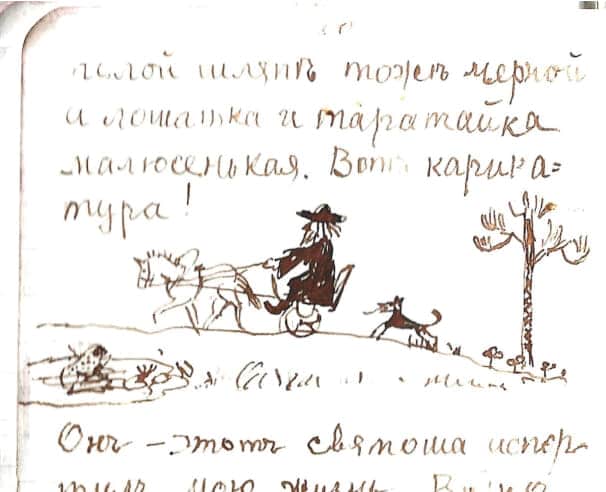 шляпѣ тоже черной
и лошатка и таратайка
малюсенькая. Вотъ карика=
тура!
Онъ – этотъ святоша испор-
тилъ мою жизнь.